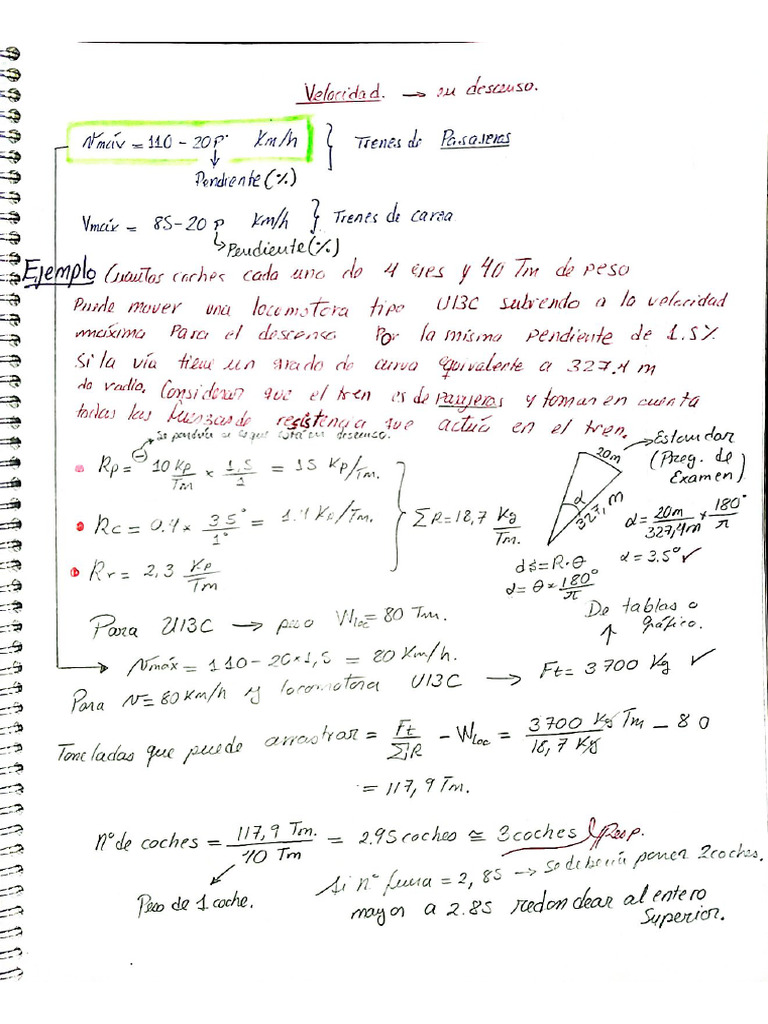 Velocidad. → en descenso.
Vmáx = 110 - 20p. Km/h } Trenes de Pasajeros
Pendiente (%)
Vmáx = 85-20 p Km/h } Trenes de carga
Pendiente (%)
Ejemplo Cuantos coches cada uno de 4 ejes y 40 Tm de peso
Puede mover una locomotora tipo U13C subiendo a la velocidad
máxima Para el descenso Por la misma pendiente de 1.5%
Si la vía tiene un grado de curva equivalente a 327,4 m
de radio. Considerar que el tren es de pasajeros y tomar en cuenta
todas las fuerzas de resistencia que actúa en el tren.
→ se pondría (-) ya que está en descenso.
Rp = 10 Kp/Tm × 1,5/1 = 15 Kp/Tm.
Rc = 0.4 × 3.5°/1° = 1.4 Kp/Tm.
Rr = 2,3 Kp/Tm
ΣR = 18,7 Kg/Tm.
20m
α
327,4 m
→ Estandar
(Preg. de
Examen)
α = 20m/327,4m × 180°/π
α = 3.5° ✓
ds = R·θ
α = θ × 180°/π
Para U13C → peso Wloc = 80 Tm.
De tablas o
gráfico.
Vmáx = 110-20×1,5 = 80 Km/h.
Para V= 80 Km/h y locomotora U13C → Ft = 3700 Kg ✓
Toneladas que puede arrastrar = Ft/ΣR - Wloc = 3700 Kg Tm/18,7 Kg - 80
= 117,9 Tm.
N° de coches = 117,9 Tm./40 Tm = 2.95 coches ≅ 3 coches // Resp.
Peso de 1 coche.
Si n° fuera = 2,85 → se debería poner 2 coches.
mayor a 2.85 redondear al entero
Superior.